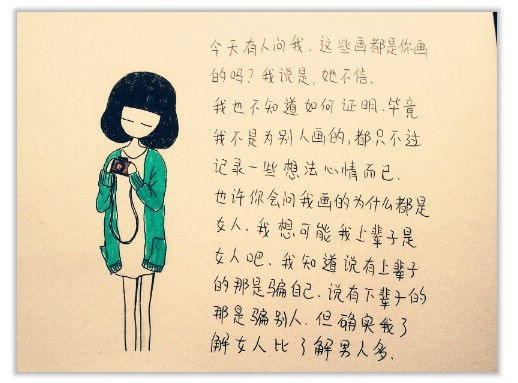 今天有人问我,这些画都是你画
的吗?我说是,她不信.
我也不知道如何证明.毕竟
我不是为别人画的,都只不过
记录一些想法心情而已.
也许你会问我画的为什么都是
女人.我想可能我上辈子是
女人吧.我知道说有上辈子
的那是骗自己.说有下辈子的
那是骗别人.但确实我了
解女人比了解男人多.